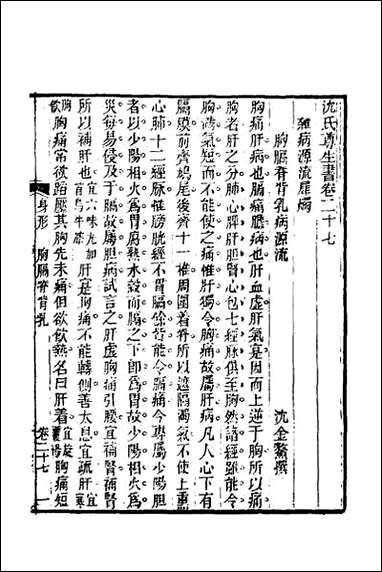 沈氏尊生書卷二十七
雜病源流犀燭　沈金鰲撰
胸膈脊背乳病源流
胸痛肝病也膈痛膽病也肝血虛肝氣是因而上逆于胸所以痛
胸者肝之分肺心脾肝膽腎心包七經脉俱至胸然諸經雖能令
胸滿氣短而不能使之痛惟肝獨令胸痛故屬肝病凡人心下有
膈膜前齊鳩尾後齊十一椎周圍着脊所以遮隔濁氣不使上熏
心肺十二經脈惟膀胱經不胃膈餘皆能令膈痛今專屬少陽膽
者以少陽相火爲胃府熱水穀而膈之下卽爲胃故少陽相火
災每易侵及于膈故膈痛屬膽病試言之肝虛胸痛引腰宜補腎
所以補肝也宜六味丸加首烏牛膝肝寔胸痛不能轉側善太息宜疏肝宜
飲胸痛常欲蹈壓其胸先未痛但欲飲熱名曰肝着宜旋胸痛短
身形　胸膈脊背乳　卷二十七　一